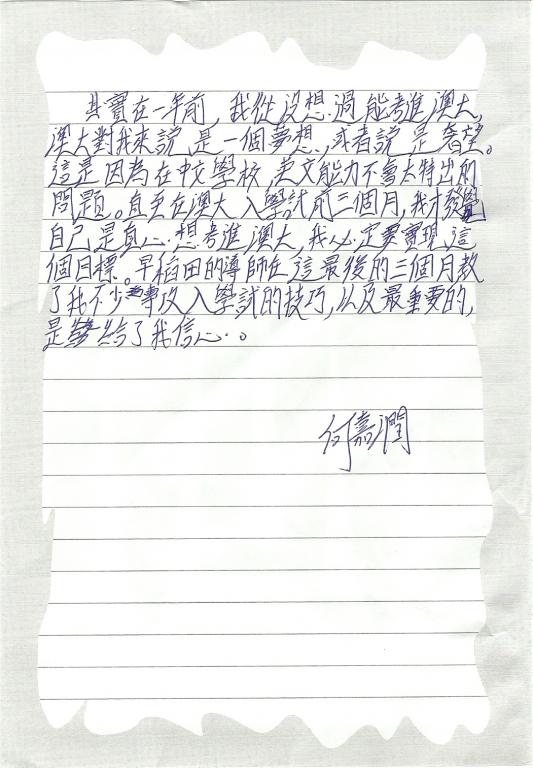 其實在一年前，我從沒想過能考進澳大，
澳大對我來說是一個夢想，或者說是奢望。
這是因為在中文學校，英文能力不會太特出的
問題。直至在澳大入學試前三個月，我才發覺
自己是真心想考進澳大，我必定要實現這
個目標。早稻田的導師在這最後的三個月教
了我不少專攻入學試的技巧，以及最重要的，
是給了我信心。
何嘉潤